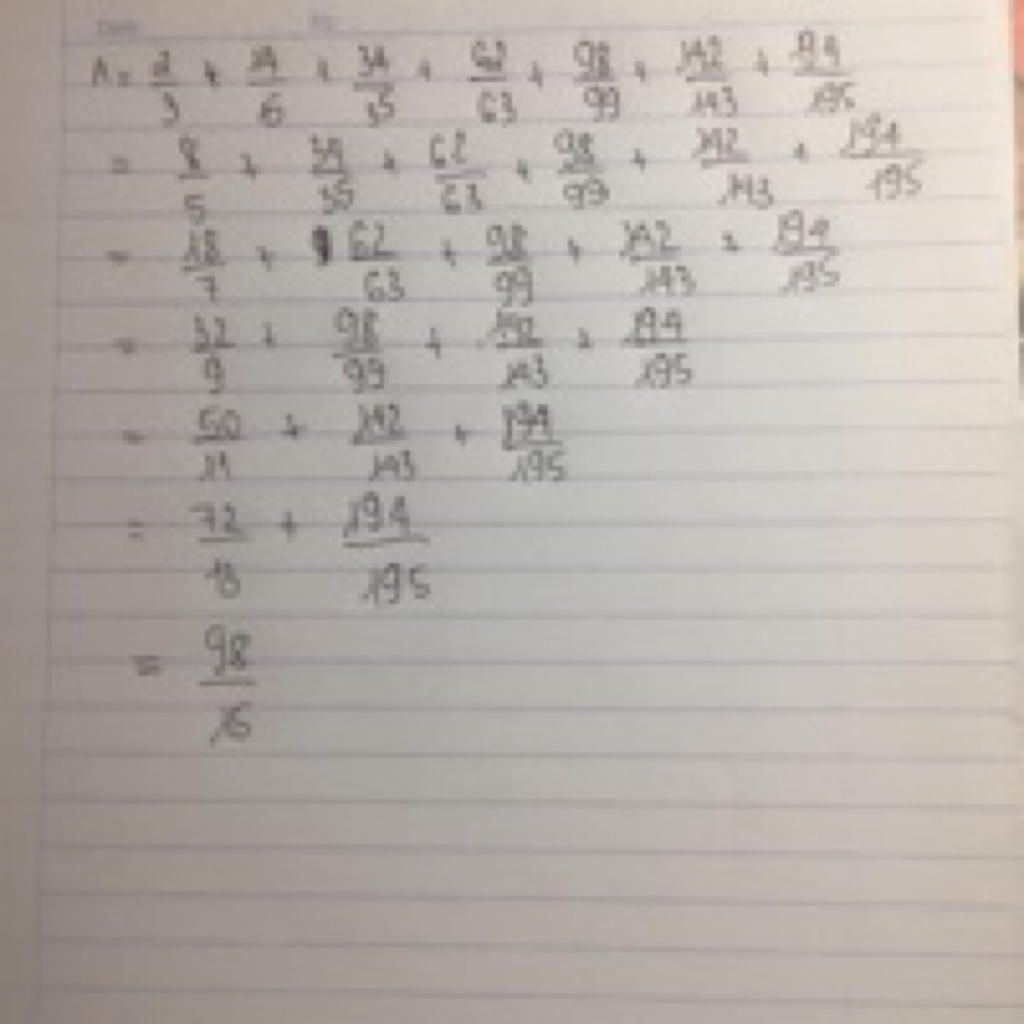 A = 2/3 + 14/15 + 34/35 + 62/63 + 98/99 + 142/143 + 194/195
= 8/5 + 34/35 + 62/63 + 98/99 + 142/143 + 194/195
= 18/7 + 62/63 + 98/99 + 142/143 + 194/195
= 32/9 + 98/99 + 142/143 + 194/195
= 50/11 + 142/143 + 194/195
= 72/13 + 194/195
= 98/15